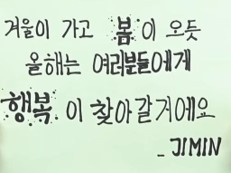 겨울이 가고 봄이 오듯
올해는 여러분들에게
행복이 찾아갈거에요
_JIMIN